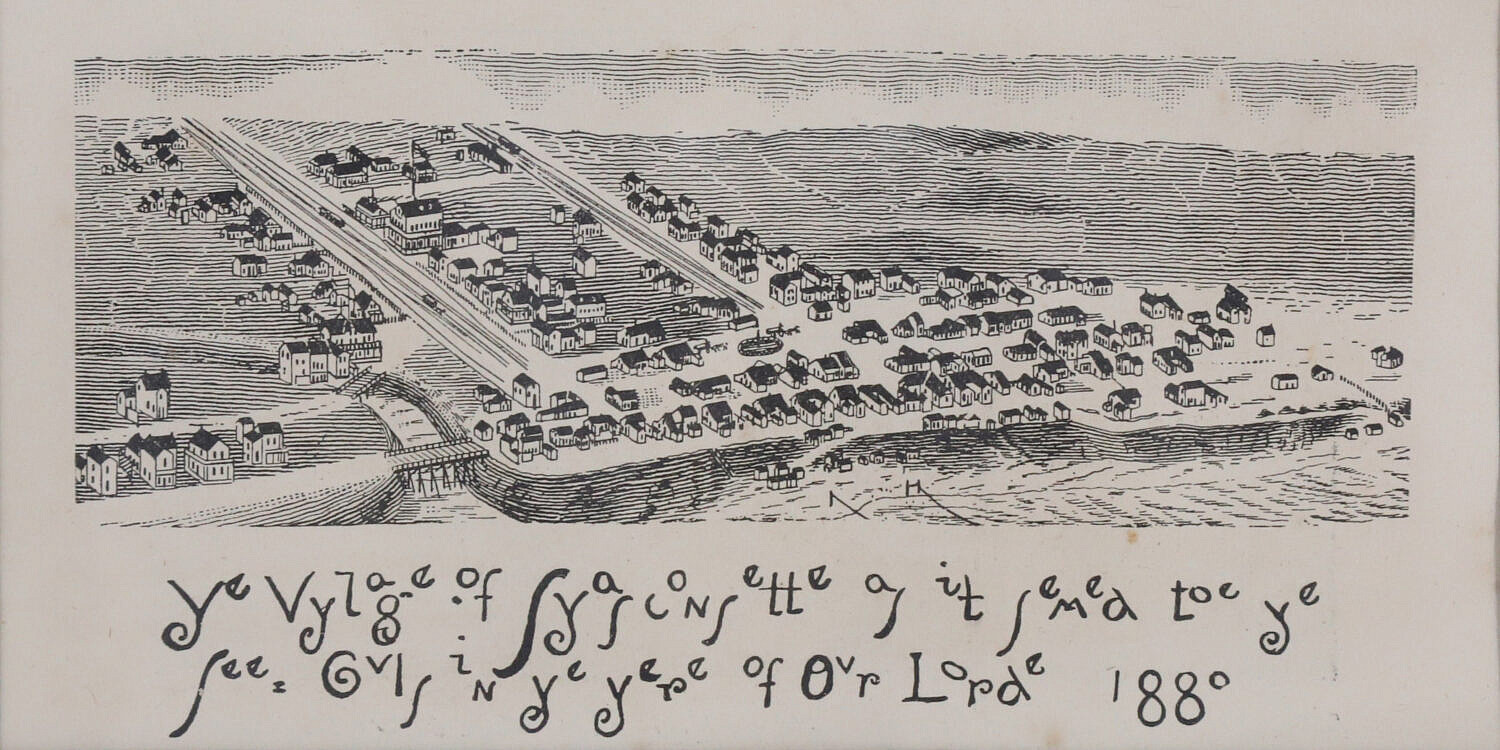 Ye Vylage of Syaſconſette aſ it ſemed toe ye
ſee= Gvlſ in ye yere of Ovr Lorde 1880